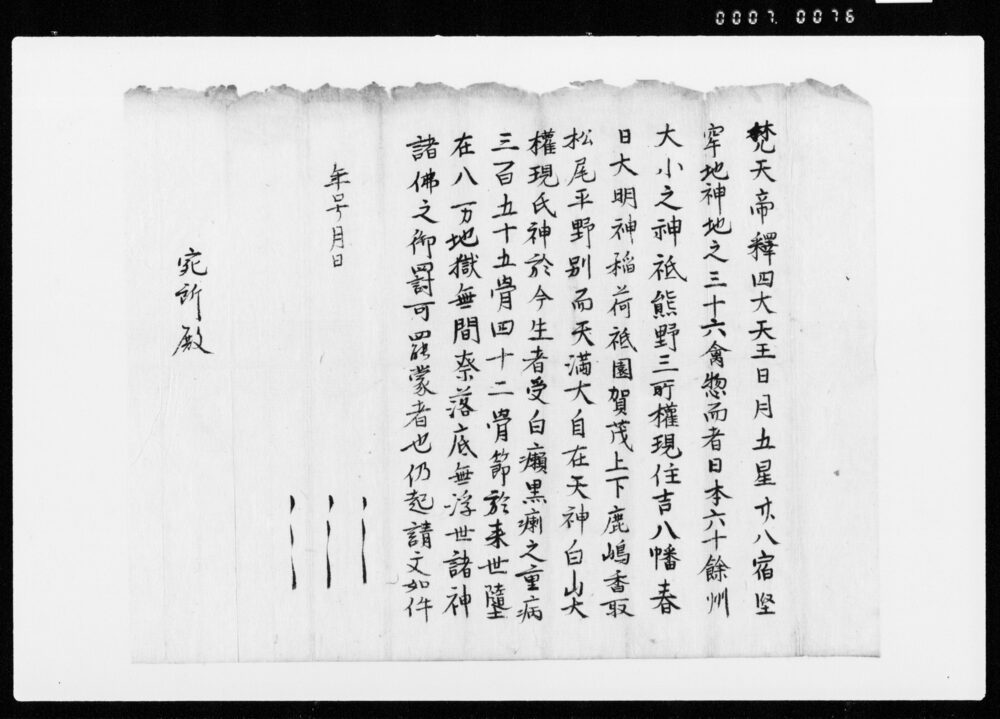 0007.0076
梵天帝釋四大天王日月五星廿八宿堅
牢地神地之三十六禽惣而者日本六十餘州
大小之神祇熊野三所權現住吉八幡春
日大明神稲荷祇園賀茂上下鹿嶋香取
松尾平野别而天満大自在天神白山大
權現氏神於今生者受白癩黒瘌之重病
三百五十五骨四十二骨節於来世墮
在八万地獄無間奈落底無浮世諸神
諸佛之御罸可罷蒙者也仍起請文如件
年号月日
宛所殿